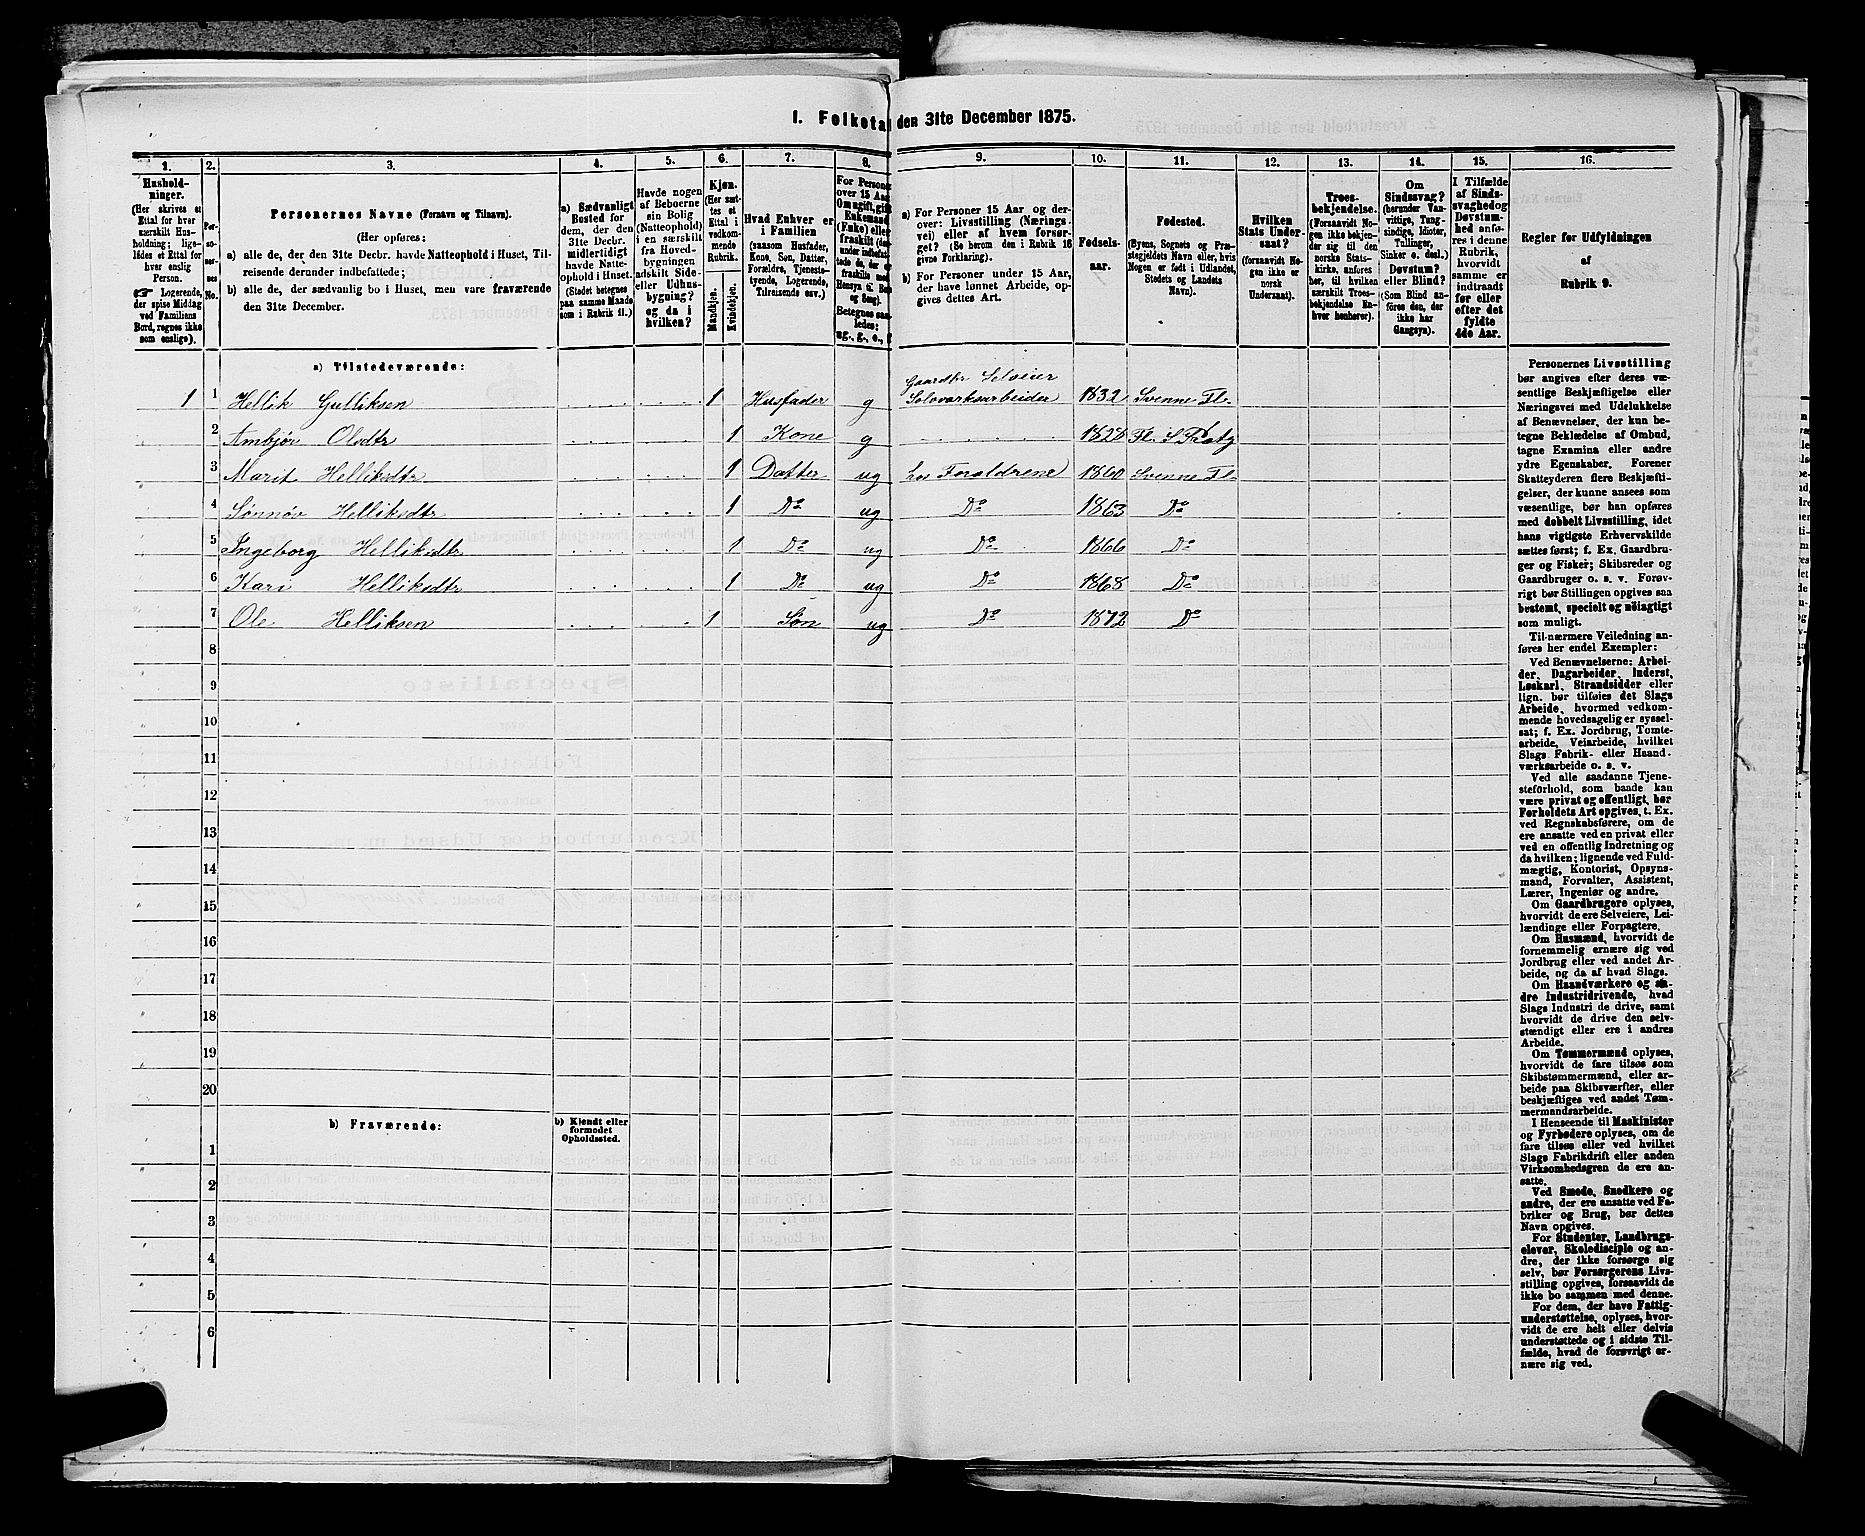 I. Folketal den 31te December 1875.
1. 2. 3. 4. 5. 6. 7. 8. 9. 10. 11. 12. 13. 14. 15. 16.
Hushold-
ninger.
(Her skrives et
Ettal for hver
særskilt Hus-
holdning; lige-
ledes et Ettal
for hver
enslig
Person.
☞ Logerende,
der spise Middag
ved Familiens
Bord, regnes ikke
som enslige).
Per-
so-
ner-
nes
No.
Personernes Navne (Fornavn og Tilnavn).
(Her opføres:
a) alle de, der den 31te Decbr. havde Natteophold i Huset, Til-
reisende derunder indbefattede;
b) alle de, der sædvanlig bo i Huset, men vare fraværende
den 31te December.
a) Sædvanligt
Bosted for
dem, der den
31te Decbr.
midlertidigt
havde Natte-
ophold i Huset.
(Stedet betegnes
paa samme Maade
som i Rubrik 11.)
Havde nogen
af Beboerne
sin Bolig
(Natteophold)
i en særskilt
fra Hoved-
bygningen
adskilt Side-
eller Udhus-
bygning?
og da i
hvilken?
Kjøn.
(Her sæt-
tes et
Ettal i
vedkom-
mende
Rubrik.
Mandkjøn.
Kvindekjøn.
Hvad Enhver er
i Familien
(saasom Husfader,
Kone, Søn, Datter,
Forældre, Tjeneste-
tyende, Logerende,
Tilreisende osv.)
For Person
over 15 Aar
Om ugift, gift
Enkemand
(Enke) eller
fraskilt (der-
under indbefat-
tede de, der er
fraskilte med
Hensyn til Bo
og Seng).
Betegnes saa-
ledes:
ug., g., e., f
a) For Personer 15 Aar og der-
over: Livsstilling (Nærings-
vei) eller af hvem forsør-
get? (Se herom den i Rubrik 16
givne Forklaring).
b) For Personer under 15 Aar,
der have lønnet Arbeide, op-
gives dettes Art.
Fødsels-
aar.
Fødested.
(Byens, Sognets og Præ-
stegjeldets Navn eller, hvis
Nogen er født i Udlandet,
Stedets og Landets
Navn).
Hvilken
Stats Under-
saat?
(forsaavidt No-
gen ikke er
norsk
Undersaat).
Troes-
bekjendelse.
(Forsaavidt No-
gen ikke bekjen-
der sig til den
norske Stats-
kirke, anføres
her, til hvilken
særskilt Troes-
bekjendelse En-
hver henhører).
Om
Sindssvag?
(herunder Van-
vittige, Tung-
sindige, Idioter,
Tullinger,
Sinker o. desl.)
Døvstum?
eller Blind?
(Som Blind an-
føres den, der
ikke har
Gangsyn).
I Tilfælde
af Sinds-
svaghed og
Døvstum-
hed anfø-
res i denne
Rubrik,
hvorvidt
samme er
indtraadt
før eller
efter det
fyldte
4de Aar.
Regler for Udfyldningen
af
Rubrik 9.
a) Tilstedeværende:
1 1 Hellik Gulliksen 1 Husfader g Gaardbr Selveier
Sølvværksarbeider 1832 Svenne Fl.
2 Ambjør Olsdtr 1 Kone g 1828
3 Marit Helliksdtr 1 Datter ug hos Forældrene 1860 Svenne Fl.
4 Sønnøv Helliksdtr 1 Do ug Do 1863 Do
5 Ingeborg Helliksdtr 1 Do ug Do 1866 Do
6 Kari Helliksdtr 1 Do ug Do 1868 Do
7 Ole Helliksen 1 Søn ug Do 1872 Do
8
9
10
11
12
13
14
15
16
17
18
19
20
b) Fraværende:
b) Kjendt eller
formodet
Opholdssted.
1
2
3
4
5
6
Personernes Livsstilling
bør angives efter deres væ-
sentlige Beskjæftigelse eller
Næringsvei med Udelukkelse
af Benævnelser, der kun be-
tegne Beklædelse af Ombud,
tagne Examina eller andre
ydre Egenskaber. Forener
Skatteyderen flere Beskjæfti-
gelser, der kunne ansees som
væsentlige, bør han opføres
med dobbelt Livsstilling, idet
hans vigtigste Erhvervskilde
sættes først; f. Ex. Gaardbru-
ger og Fisker; Skibsreder og
Gaardbruger o. s. v. Forøv-
rigt bør Stillingen opgives saa
bestemt, specielt og nøiagtigt
som muligt.
Til nærmere Veiledning an-
føres her endel Exempler:
Ved Benævnelserne: Arbei-
der, Dagarbeider, Inderst,
Løskarl, Strandsidder eller
lign. bør tilføies det Slags
Arbeide, hvormed vedkom-
mende hovedsagelig er syssel-
sat; f. Ex. Jordbrug, Tomte-
arbeide, Veiarbeide, hvilket
Slags Fabrik- eller Haand-
værksarbeide o. s. v.
Ved alle saadanne Tjene-
steforhold, som baade kan
være privat og offentligt, bør
Forholdets Art opgives, t. Ex.
ved Regnskabsførere, om de
ere ansatte ved en privat eller
ved en offentlig Indretning og
da hvilken; lignende ved Fuld-
mægtig, Kontorist, Opsyns-
mand, Forvalter, Assistent,
Lærer, Ingeniør og andre.
Om Gaardbrugere oplyses,
hvorvidt de ere Selveiere, Lei-
lændinge eller Forpagtere.
Om Husmænd, hvorvidt de
fornemmelig ernære sig ved
Jordbrug eller ved andet Ar-
beide, og da af hvad Slags.
Om Haandværkere og an-
dre Industridrivende, hvad
Slags Industri de drive, samt
hvorvidt de drive den selv-
stændigt eller ere i andres
Arbeide.
Om Tømmermænd oplyses,
hvorvidt de fare tilsøs som
Skibstømmermænd, eller ar-
beide paa Skibsværfter, eller
beskjæftiges ved andet Tøm-
mermandsarbeide.
I Henseende til Maskinister
og Fyrbødere oplyses, om de
fare tilsøs eller ved hvilket
Slags Fabrikdrift eller anden
Virksomhedsgren de ere an-
satte.
Ved Smede, Snedkere og
andre, der ere ansatte ved Fa-
briker og Brug, bør dettes
Navn opgives.
For Studenter, Landbrugs-
elever, Skoledisciple og an-
dre, der ikke forsørge sig
selv, bør Forsørgerens Livs-
stilling opgives, forsaavidt de
ikke bo sammen med denne.
For dem, der have Fattig-
understøttelse, oplyses, hvor-
vidt de ere helt eller delvis
understøttede og i sidste Til-
fælde, hvad de forøvrigt er-
nære sig ved.